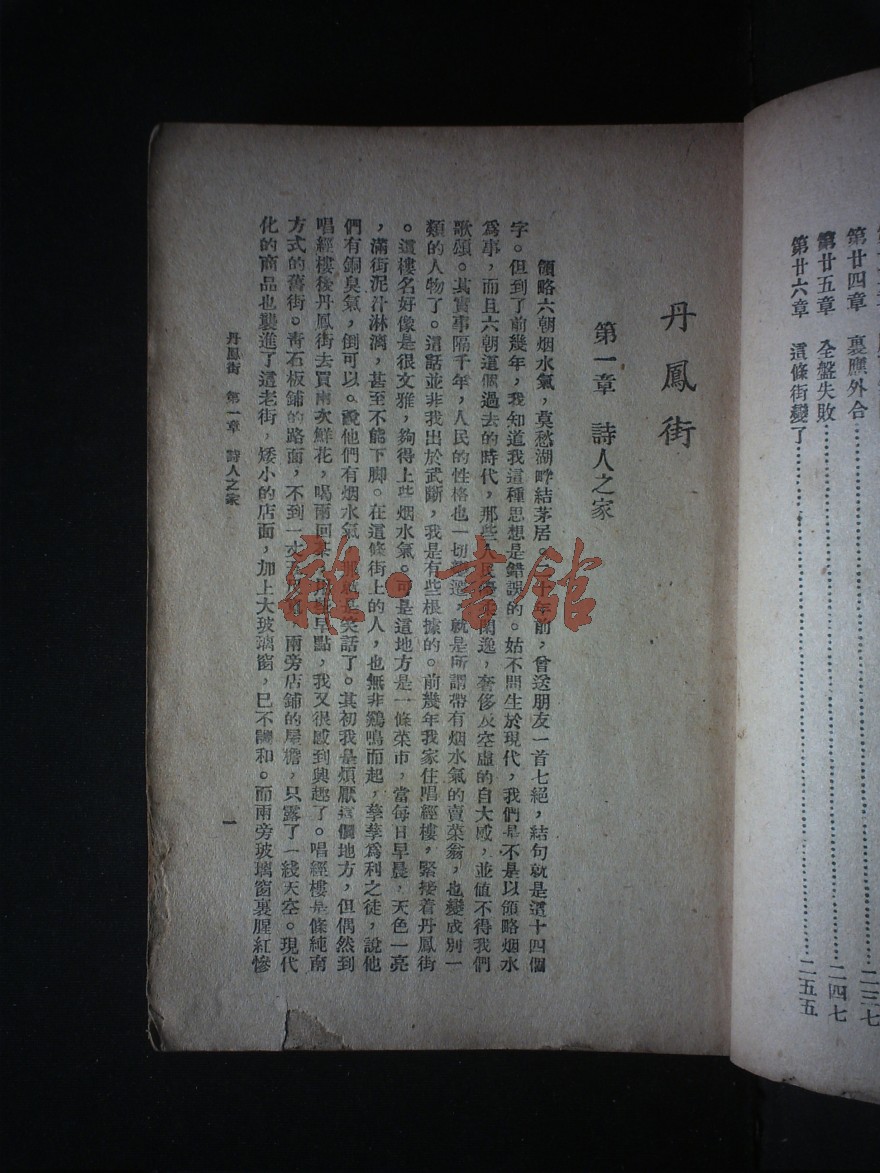 第廿四章 裏應外合………二三七
第廿五章 全盤失敗………二四七
第廿六章 這條街變了………二五五
丹鳳街
第一章 詩人之家
領略六朝烟水氣,莫愁湖畔結茅居。二十年前,曾送朋友一首七絕,結句就是這十四個
字。但到了前幾年,我知道我這種思想是錯誤的。姑不問生於現代,我們是不是以領略烟水
爲事,而且六朝這個過去的時代,那些人民優柔閑逸,奢侈及空虛的自大感,並値不得我們
歌頌。其實事隔千年,人民的性格也一切,就是所謂帶有烟水氣的賣菜翁,也變成別一
類的人物了。這話並非我出於武斷,我是有些根據的。前幾年我家住唱經樓,緊接着丹鳳街
。這樓名好像是很文雅,夠得上些烟水氣。可是這地方是一條菜市,當每日早晨,天色一亮
,滿街泥汁淋漓,甚至不能下脚。在這條街上的人,也無非鷄鳴而起,孳孳爲利之徒,說他
們有銅臭氣,倒可以。說他們有烟水氣,那就是笑話了。其初我是煩厭這個地方,但偶然到
唱經樓後丹鳳街去買兩次鮮花,喝兩回茶,早點,我又很感到興趣了。唱經樓是條純南
方式的舊街。靑石板鋪的路面,不到一丈五,兩旁店鋪的屋檐,只露了一綫天空。現代
化的商品也襲進了這老街,矮小的店面,加上大玻璃窗,已不調和。而兩旁玻璃窗裏腥紅慘
丹鳳街 第一章 詩人之家
一
雜·書館